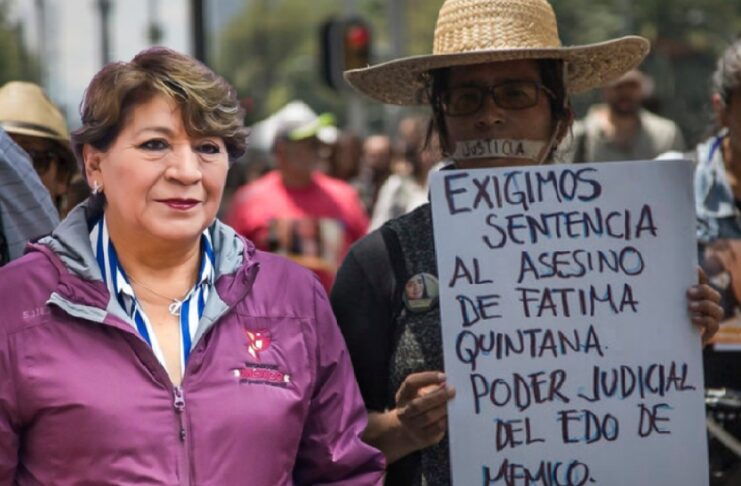 JUSTICIA
EXIGIMOS
SENTENCIA
AL ASESINO
DE FATIMA
QUINTANA.
PODER JUDICIAL
DEL EDO DE
MEMICO.